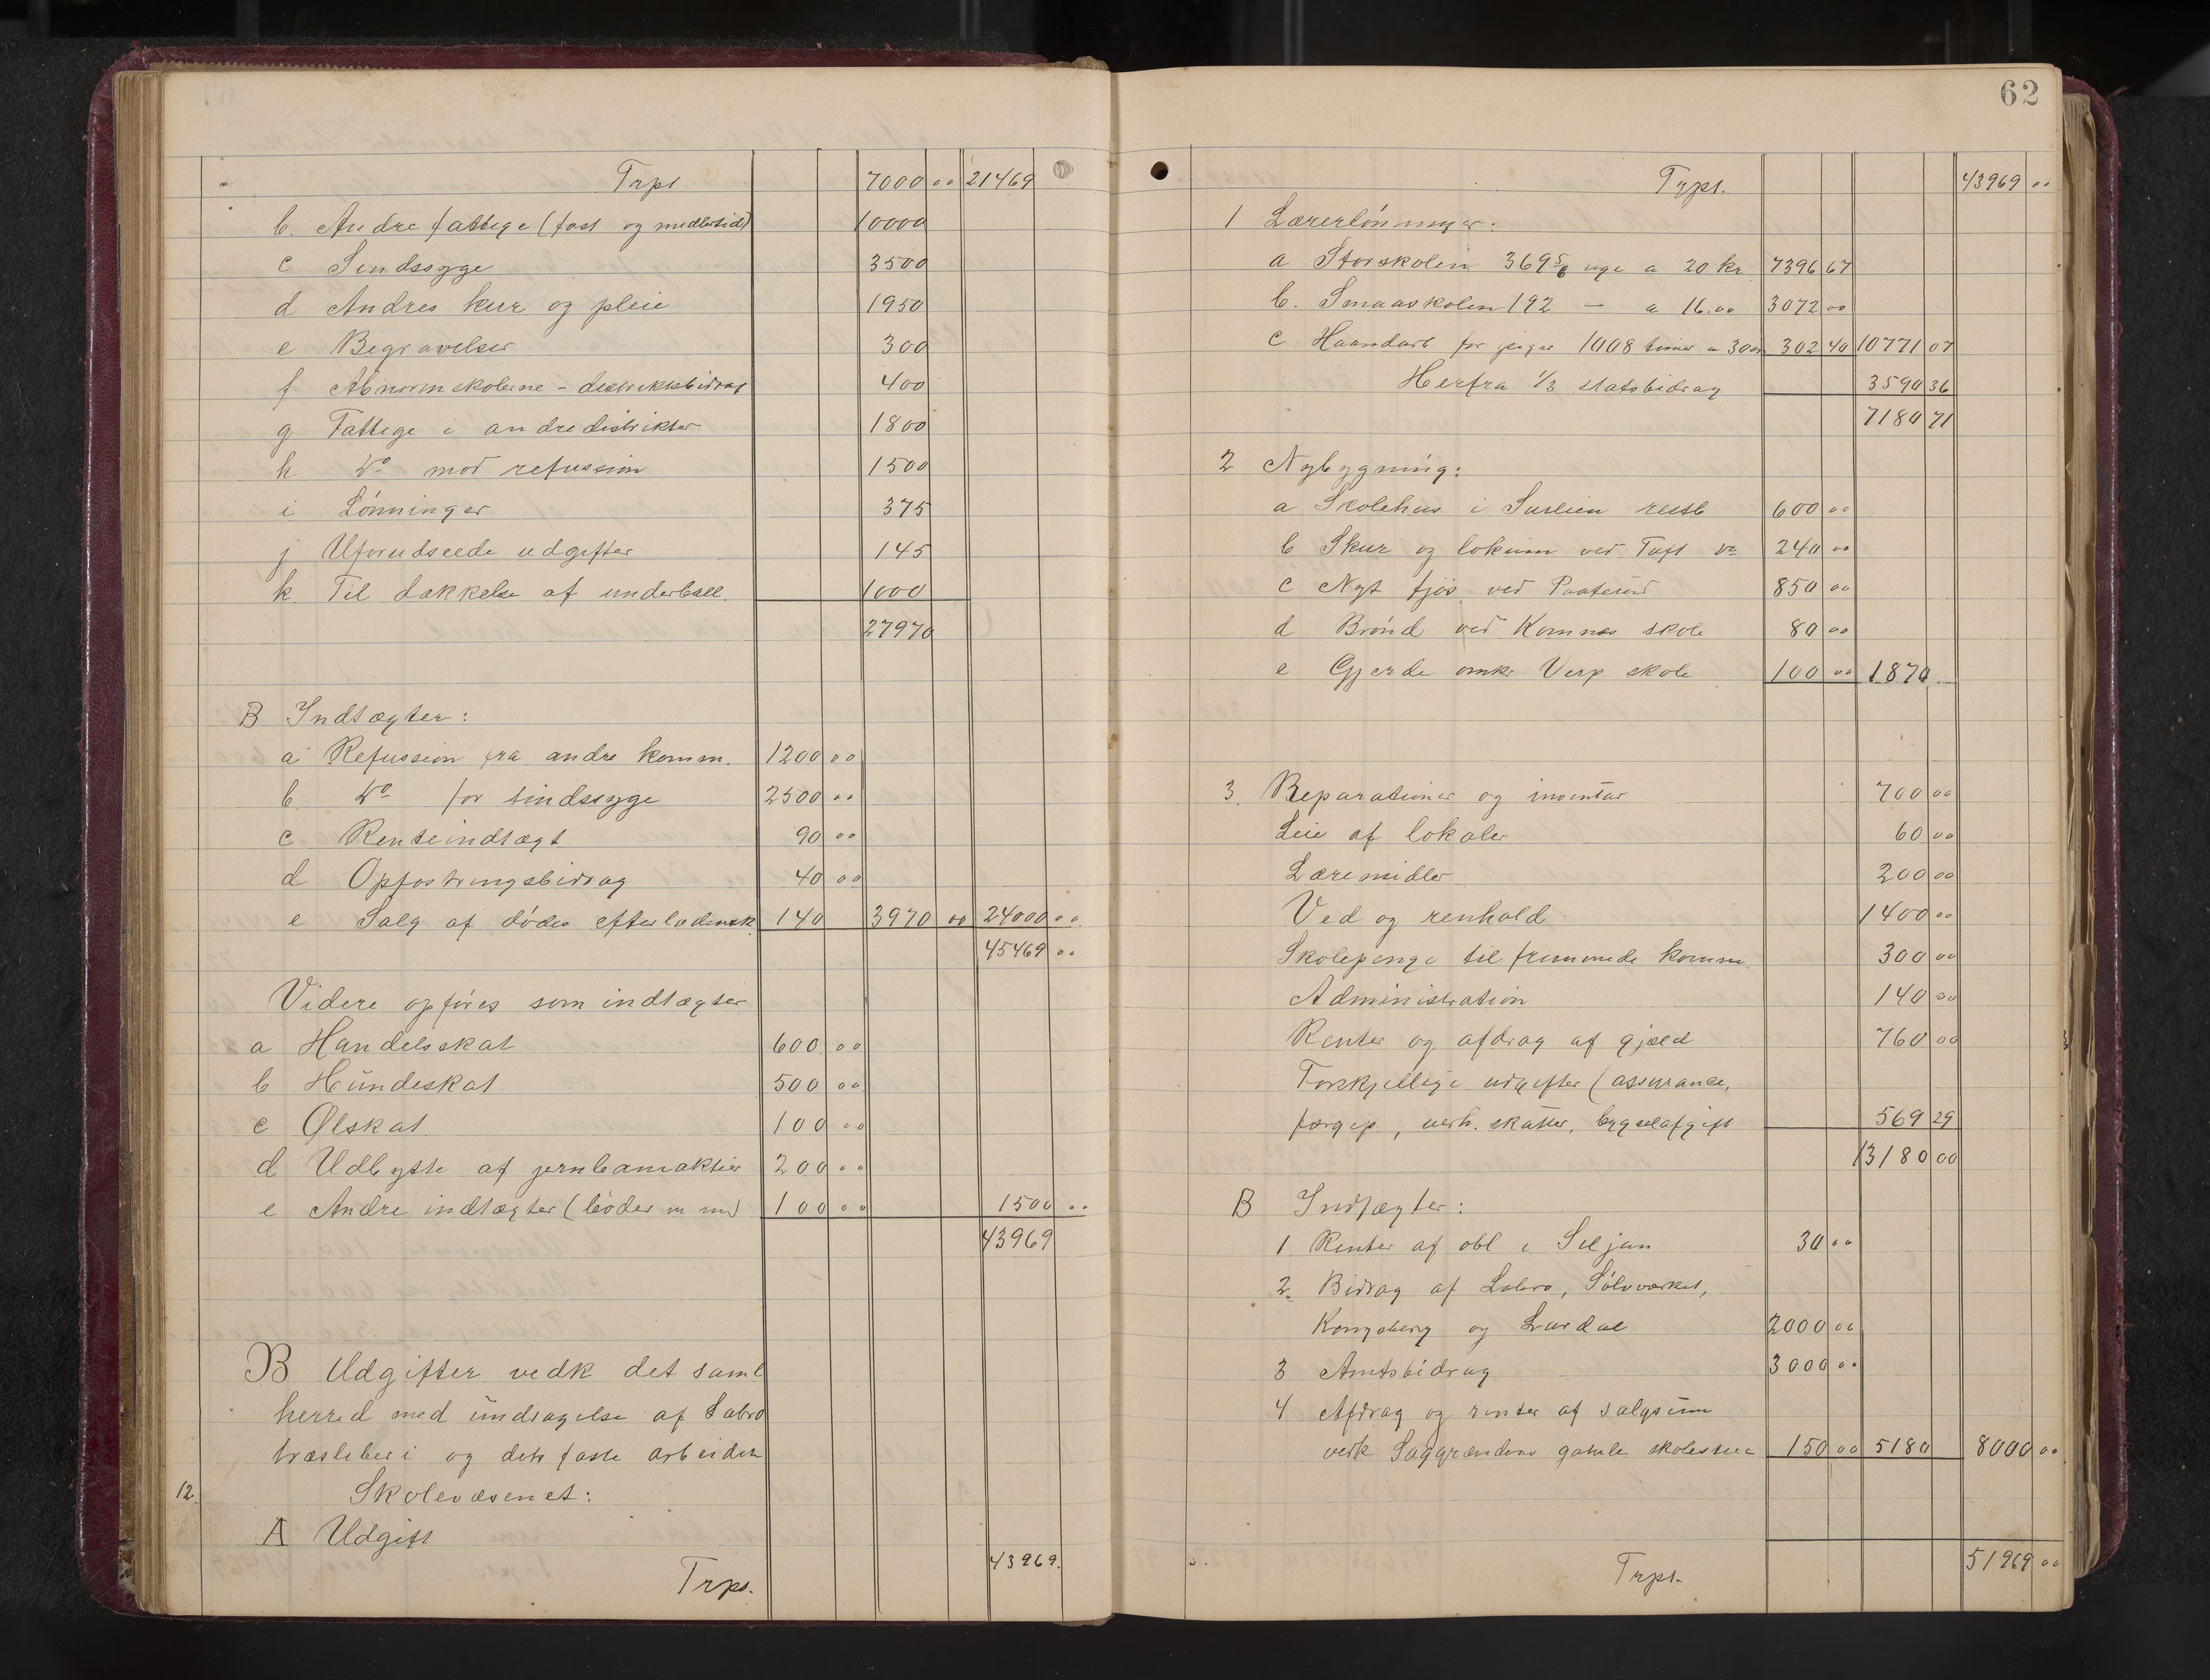 Trpt 7000 00 21469
b. Andre fattige (fast og midlertid) 10000
c Sindssyge 3500
d Andres kur og pleie 1950
e Begravelser 300
f Abnormskolerne - distriktsbidrag 400
g Fattige i andre distrikter 1800
h Do mod refussion 1500
i Lønninger 375
j Uforudseede udgifter 145
k Til dækkelse af underball. 1000
27970
B Indtægter:
a Refussion fra andre komm. 1200 00
b. Do for sindssyge 2500 00
c Renteindtægt 90 00
d Opfostringsbidrag 40 00
e Salg af dødes efterladensk 140 3970 00 24000 00
45469 00
Videre opføres som indtægter
a Handelsskat 600 00
b Hundeskat 500 00
c Ølskat 100 00
d Udbytte af jernbaneaktier 200 00
e Andre indtægter (bøder m m) 100 00 1500 00
43969
B Udgifter vedk det saml
herred med undtagelse af Labro
træsliberi og dets faste arbeidere
12. Skolevæsenet:
A Udgift
43969.
Trpt.
62
Trpt. 43969 00
1 Lærerlønninger:
a Storskolen 369 5/6 uge a 20 kr 7396 67
b. Smaaskolen 192 — a 16.00 3072 00
c Haandarb for piger 1008 timer a 30 øre 302 40 10771 07
Herfra 1/3 statsbidrag 3590 36
7180 71
2 Nybygning:
a Skolehus i Surlien restb 600 00
b Skur og lokum ved Tuft do 240 00
c Nyt fjøs ved 850 00
d Brønd ved Komnes skole 80 00
e Gjerde omkr Verp skole 100 00 1870
3. Reparationer og inventar 700 00
Leie af lokaler 60 00
Læremidler 200 00
Ved og renhold 1400 00
Skolepenge til fremmede komm. 300 00
Administration 140 00
Renter og afdrag af gjæld 760 00
Forskjellige udgifter (assurance,
, verh. skatter, bygselafgift 569 29
13180 00
B Indtægter:
1. Renter af obl i Siljan 30 00
2. Bidrag af Labro, Sølvværket,
Kongsberg og Lurdal 2000 00
3 Amtsbidrag 3000 00
4 Afdrag og renter af salgsum
vedk Saggrændens gamle skolestue 150 00 5180 8000 00
Trpt. 51969 00